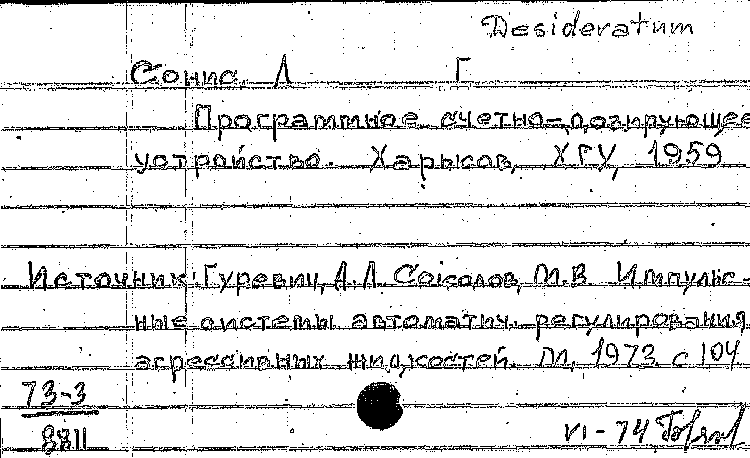 Desideratum
Сонис, Л Г
Программное счетно-дозирующее
устройство. Харьков, ХГУ, 1959
Источник: Гуревич, А.Л. Соколов, М.В Импульс-
ные системы автоматич. регулирования
агрессивных жидкостей. М, 1973 с 104
73-3
8811
VI-74